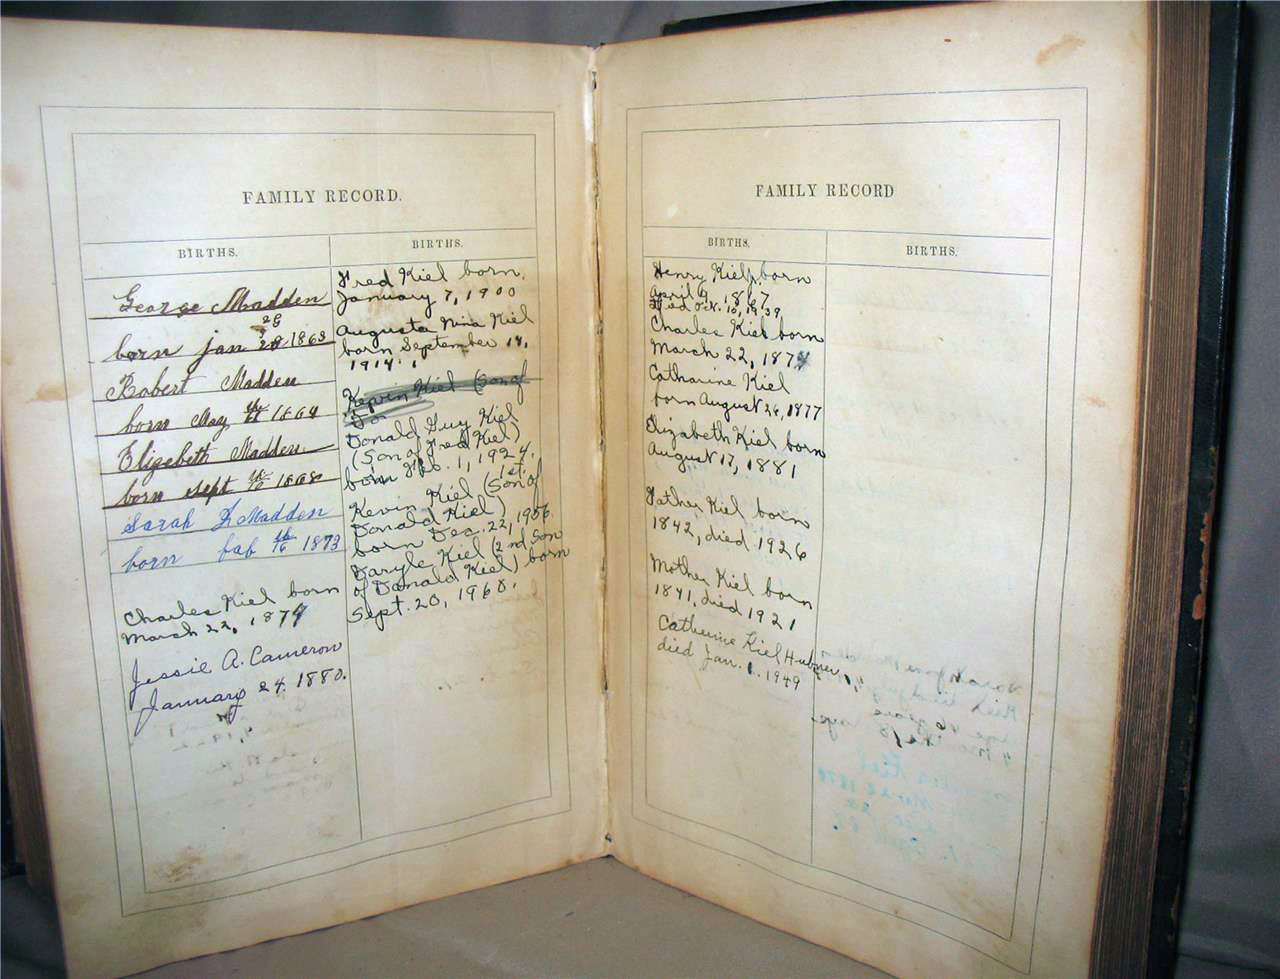 FAMILY RECORD.
BIRTHS.
George Madden
28
born Jan 1863
Robert Madden
born May 1864
Elizabeth Madden.
born Sept 1868
Sarah Madden
born feb 16 1873
Charles Kiel born
March 22, 1874
Jessie A. Cameron
January 24. 1880.
BIRTHS.
Fred Kiel born
January 7, 1900
Augusta Nina Kiel
born September 14,
1914.
Kevin Kiel (Son of
Do
Donald Guy Kiel
(Son of Fred Kiel)
born Feb. 1, 1924.
Kevin Kiel (1st. Son of
Donald Kiel)
born Dec. 22, 1956.
Daryle Kiel (2nd Son
of Donald Kiel) born
Sept. 20, 1960.
FAMILY RECORD
BIRTHS.
Henry Kiel, born
April 9, 1867
Died Oct. 10, 1939,
Charles Kiel born
March 22, 1874
Catharine Kiel
born August 26, 1877
Elizabeth Kiel born
August 17, 1881
Father Kiel born
1842, died 1926
Mother Kiel born
1841, died 1921
Catherine Kiel Hubner
died Jan. 1. 1949
BIRTHS.